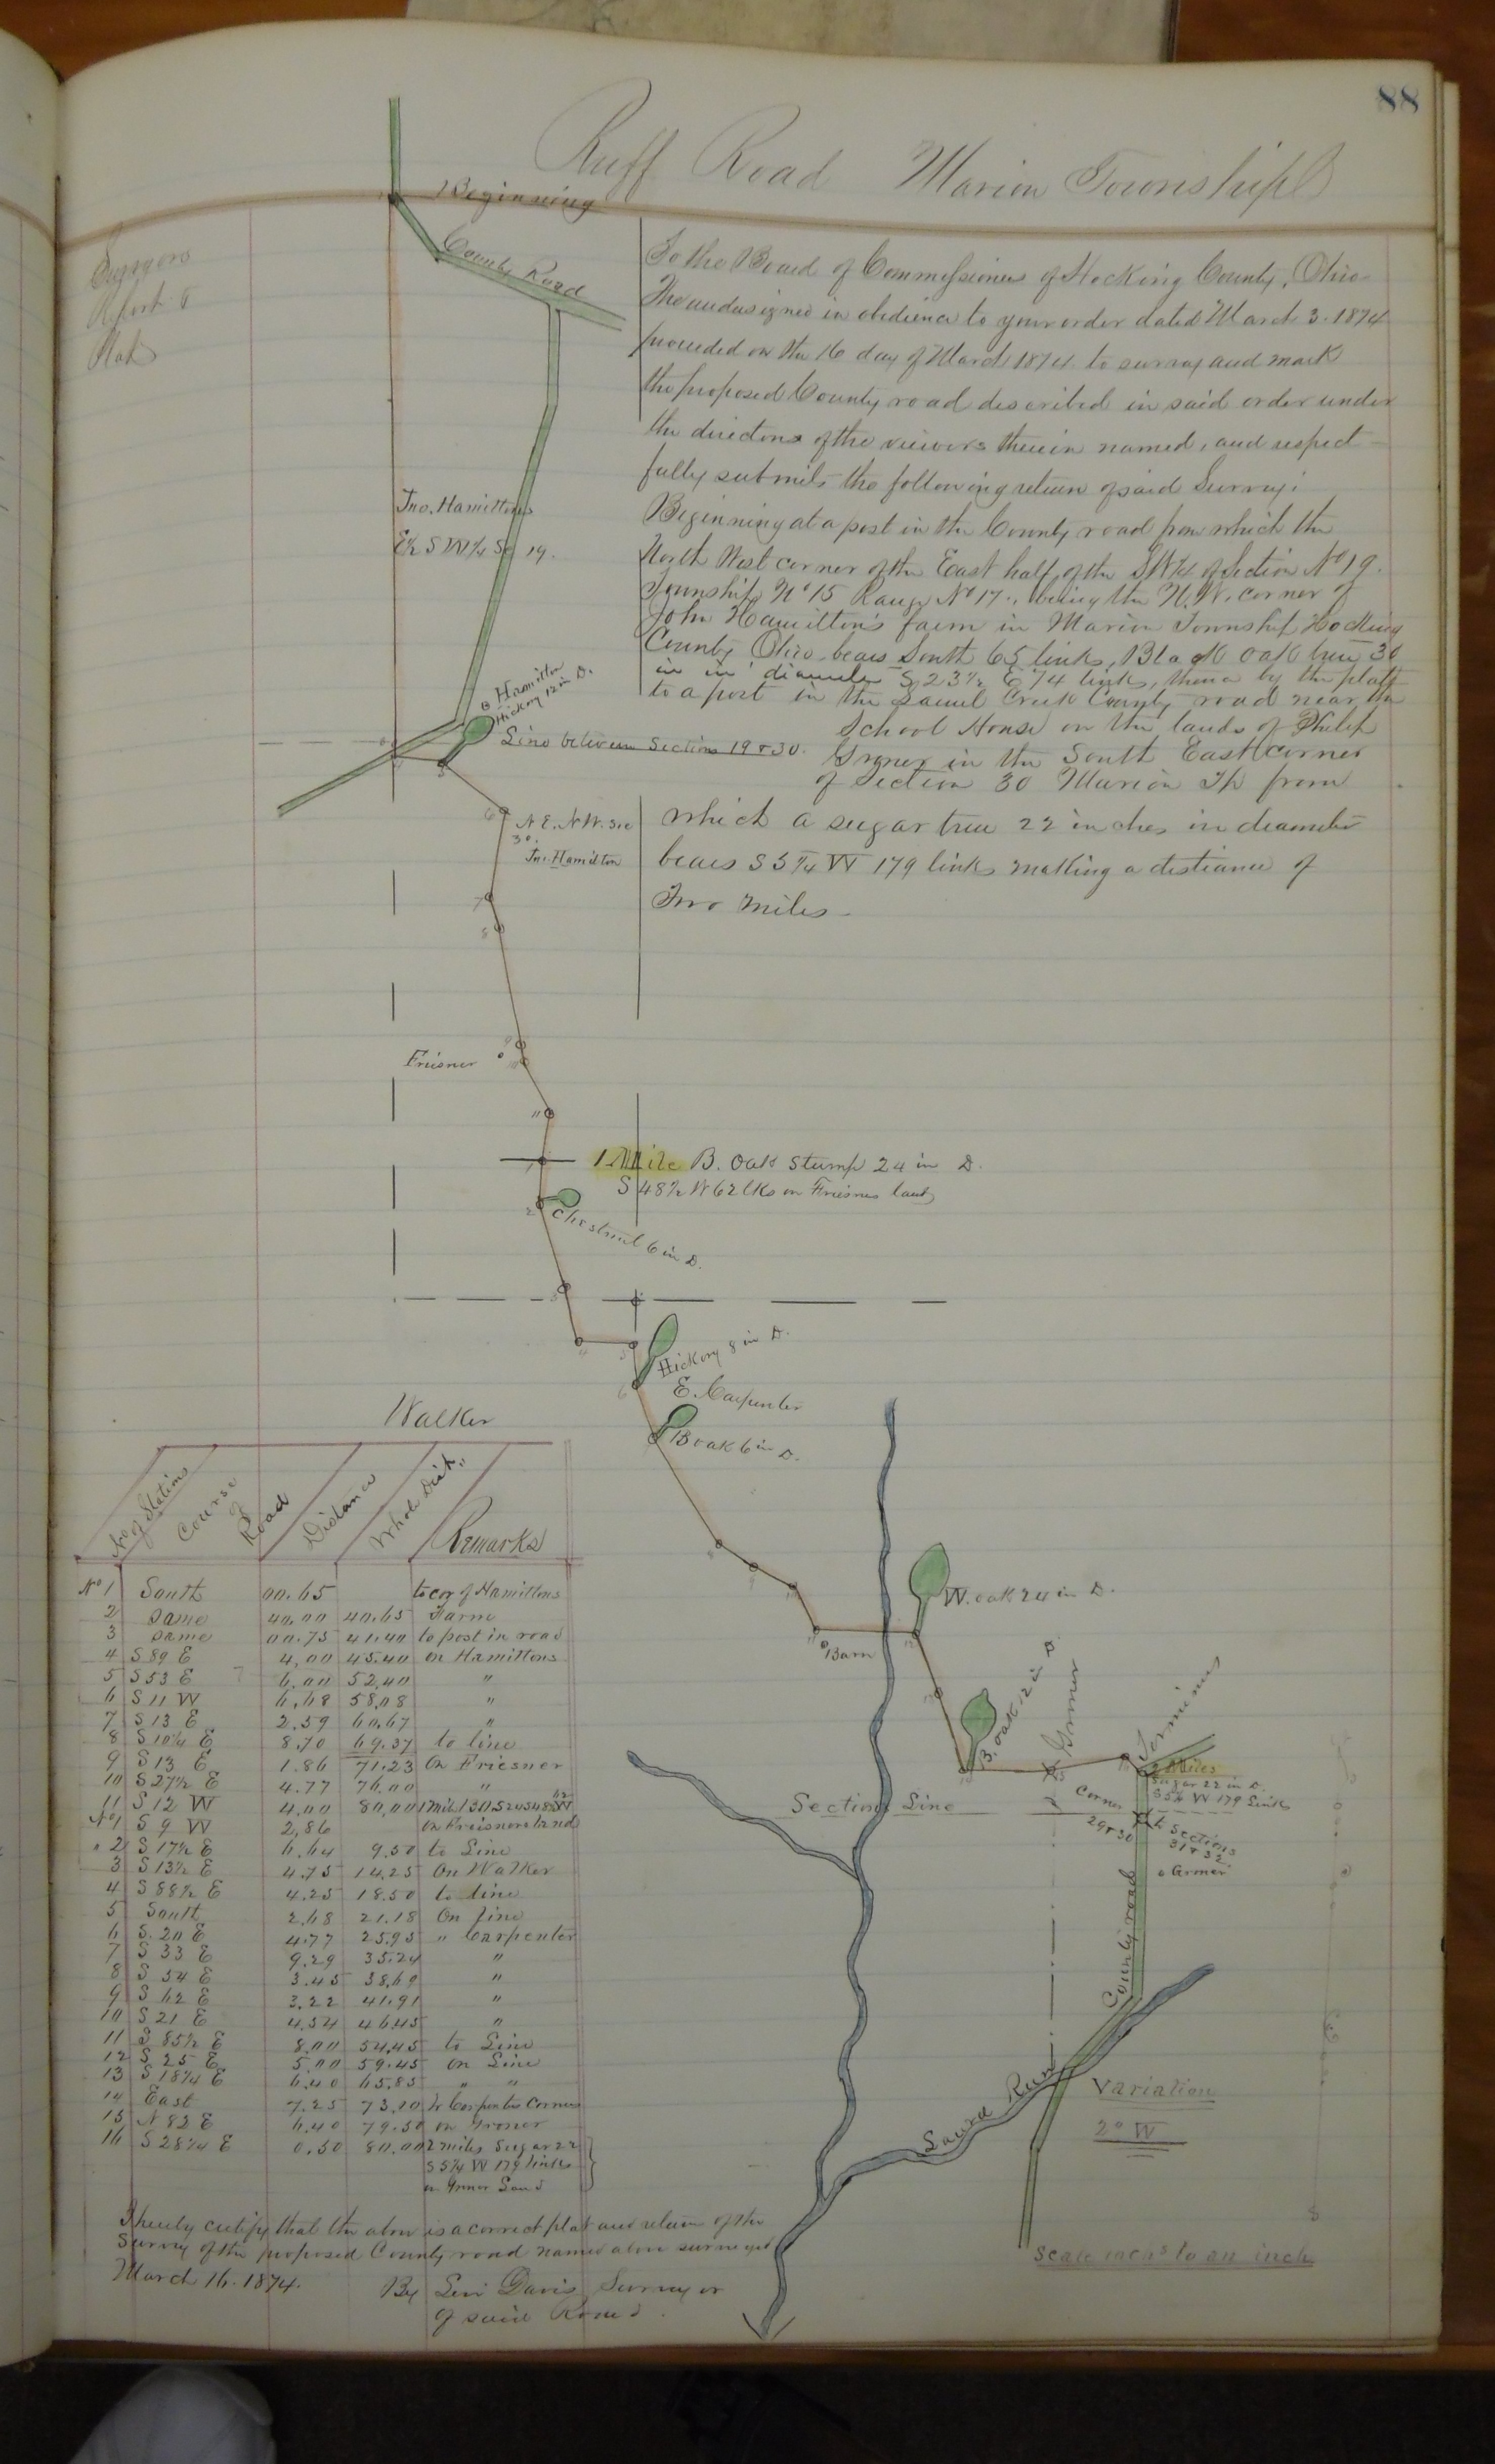 88
Ruff Road Marion Township
Surveyors
Report &
Plat
Beginning
County Road
To the Board of Commissioners of Hocking County, Ohio
The undersigned in obedience to your order dated March 3. 1874
proceded on the 16 day of March 1874 to survey and mark
the proposed County road described in said order under
the directions of the viewers therein named, and respect
fully submits the following return of said Survey:
Beginning at a post in the County road from which the
North West corner of the East half of the SW¼ of Section No 19.
Township No 15 Range No 17., being the N.W. corner of
John Hamilton's farm in Marion Township Hocking
County Ohio bears South 65 links, Black oak tree 30
in in diameter S 23½ E 74 links, thence by the plat
to a post in the Creek County road near the
School House on the lands of Philip
Groner in the South East corner
of Section 30 Marion Tp from
which a sugar tree 22 inches in diameter
bears S 5¼ W 179 links making a distance of
Two miles
Jno. Hamiltons
E½ SW¼ Sc 19.
Hamilton
Hickory 12 in D.
Line between Sections 19 & 30.
6
N E. N W. Sec
30.
Jno. Hamilton
7
8
9
10
Friesner
11
1 Mile B. Oak Stump 24 in D.
S 48½ W 62 lks on Friesnes land
2
Chestnut 6 in D.
3
4
5
Hickory 8 in D.
6
E. Carpenter
B oak 6 in D.
Walker
W. oak 24 in D.
11
Barn
12
B. oak 12 in D.
Groner
Terminus
2 Miles
Sugar 22 in D.
S 5¼ W 179 Links
Section Line
Corner
29 & 30
to Sections
31 & 32
County road
Run
Variation
2° W
to an inch
No of Stations Course of Road Distance Whole Dist. Remarks
No 1 South 00.65 to cor of Hamiltons
2 Same 40.00 40.65 Farm
3 Same 00.75 41.40 to post in road
4 S 89 E 4,00 45.40 on Hamiltons
5 S 53 E 6,00 52,40 "
6 S 11 W 6,68 58,08 "
7 S 13 E 2.59 60.67 "
8 S 10¼ E 8.70 69.37 to line
9 S 13 E 1.86 71.23 On Friesner
10 S 27½ E 4.77 76.00 "
11 S 12 W 4.00 80,00 1 mile
No 1 S 9 W 2,86 on Friesners land
2 S 17½ E 6.64 9.50 to Line
3 S 13½ E 4.75 14.25 On Walker
4 S 88½ E 4.25 18.50 to line
5 South 2.68 21.18 On line
6 S. 20 E 4.77 25.95 " Carpenter
7 S 33 E 9.29 35.24 "
8 S 54 E 3.45 38.69 "
9 S 62 E 3.22 41.91 "
10 S 21 E 4.54 46.45 "
11 S 85½ E 8.00 54.45 to Line
12 S 25 E 5.00 59.45 on Line
13 S 18¼ E 6.40 65.85 " "
14 East 7.25 73.10 to Carpenters Corner
15 N 82 E 6.40 79.50 on Groner
16 S 28¼ E 0.50 80.00 2 miles Sugar 22
S 5¼ W 179 links
on Groner Land
I hereby certify that the above is a correct plat and return of the
Survey of the proposed County road named above surveyed
March 16. 1874.
By Levi Davis Surveyor
of said Road.